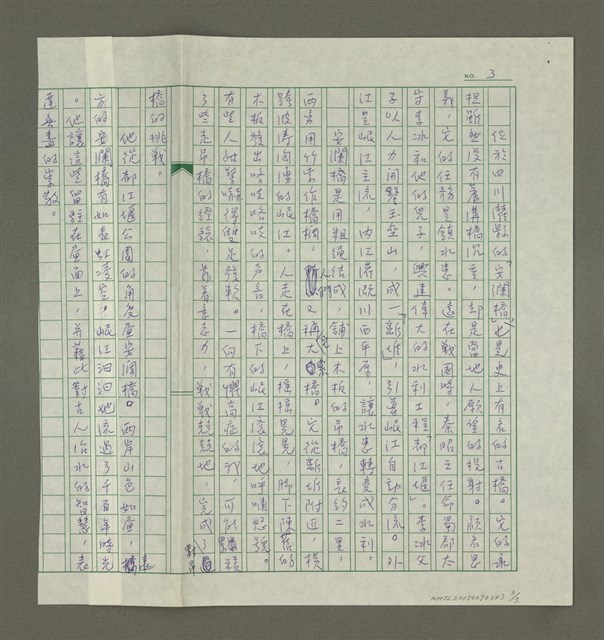 NO. 3
位於四川灌縣的「安瀾橋」也是史上有名的古橋。它的來
歷雖然沒有蘆溝橋沉重,卻是當地人願望的投射。顧名思
義,它的任務是鎮水患。遠在戰國時,秦昭王任命蜀郡太
守李冰和他的兒子,興建偉大的水利工程「都江堰」。李冰父
子以人力開鑿玉壘山,成一「離堆」,引導岷江自動分流。外
江是岷江主流,內江灌溉川西平原,讓水患轉變成水利。
安瀾橋是用粗繩結成,鋪上木板的吊橋,長約二里,
兩旁用竹索作橋欄,人們又稱它「大索橋」。它從離堆附近,橫
跨波濤洶湧的岷江。人走在橋上,搖搖晃晃,腳下陳舊的
木板發出咯吱咯吱的聲音,橋下的岷江滾滾地呼嘯怒號。
有些人被驚嚇得雙足發軟。一向有懼高症的我,可能積
了些走吊橋的經驗,靠着意志力,戰戰兢兢地,完成了對吊
橋的挑戰。
他從都江堰公園的角度畫安瀾橋。兩岸山色如畫,遠
方的安瀾橋有如長虹凌空。岷江汩汩地流過了千百年時光
。他讓這些留駐在畫面上,並藉此對古人治水的智慧,表
達無盡的崇敬。
NMTL20150290343 3/3